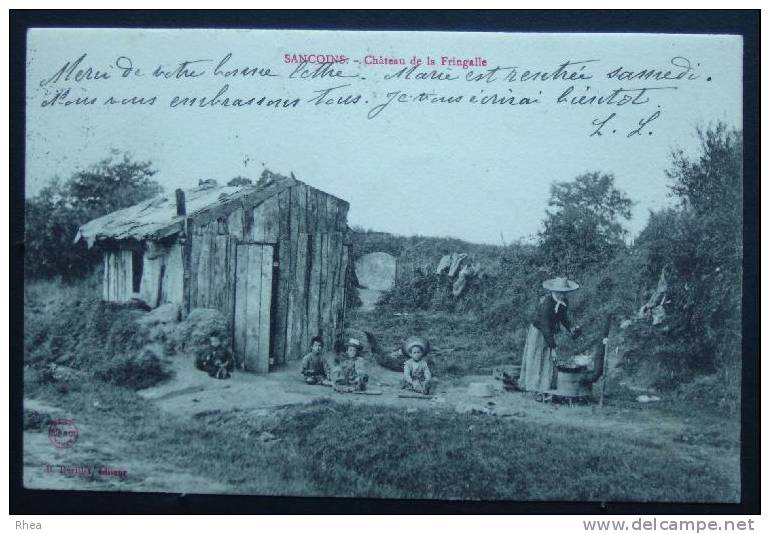 SANCOINS. - Château de la Fringalle
Merci de votre bonne lettre. Marie est rentrée samedi.
Nous vous embrassons tous. Je vous écrirai bientôt
L. L.
éditeur
Rhea
www.delcampe.net